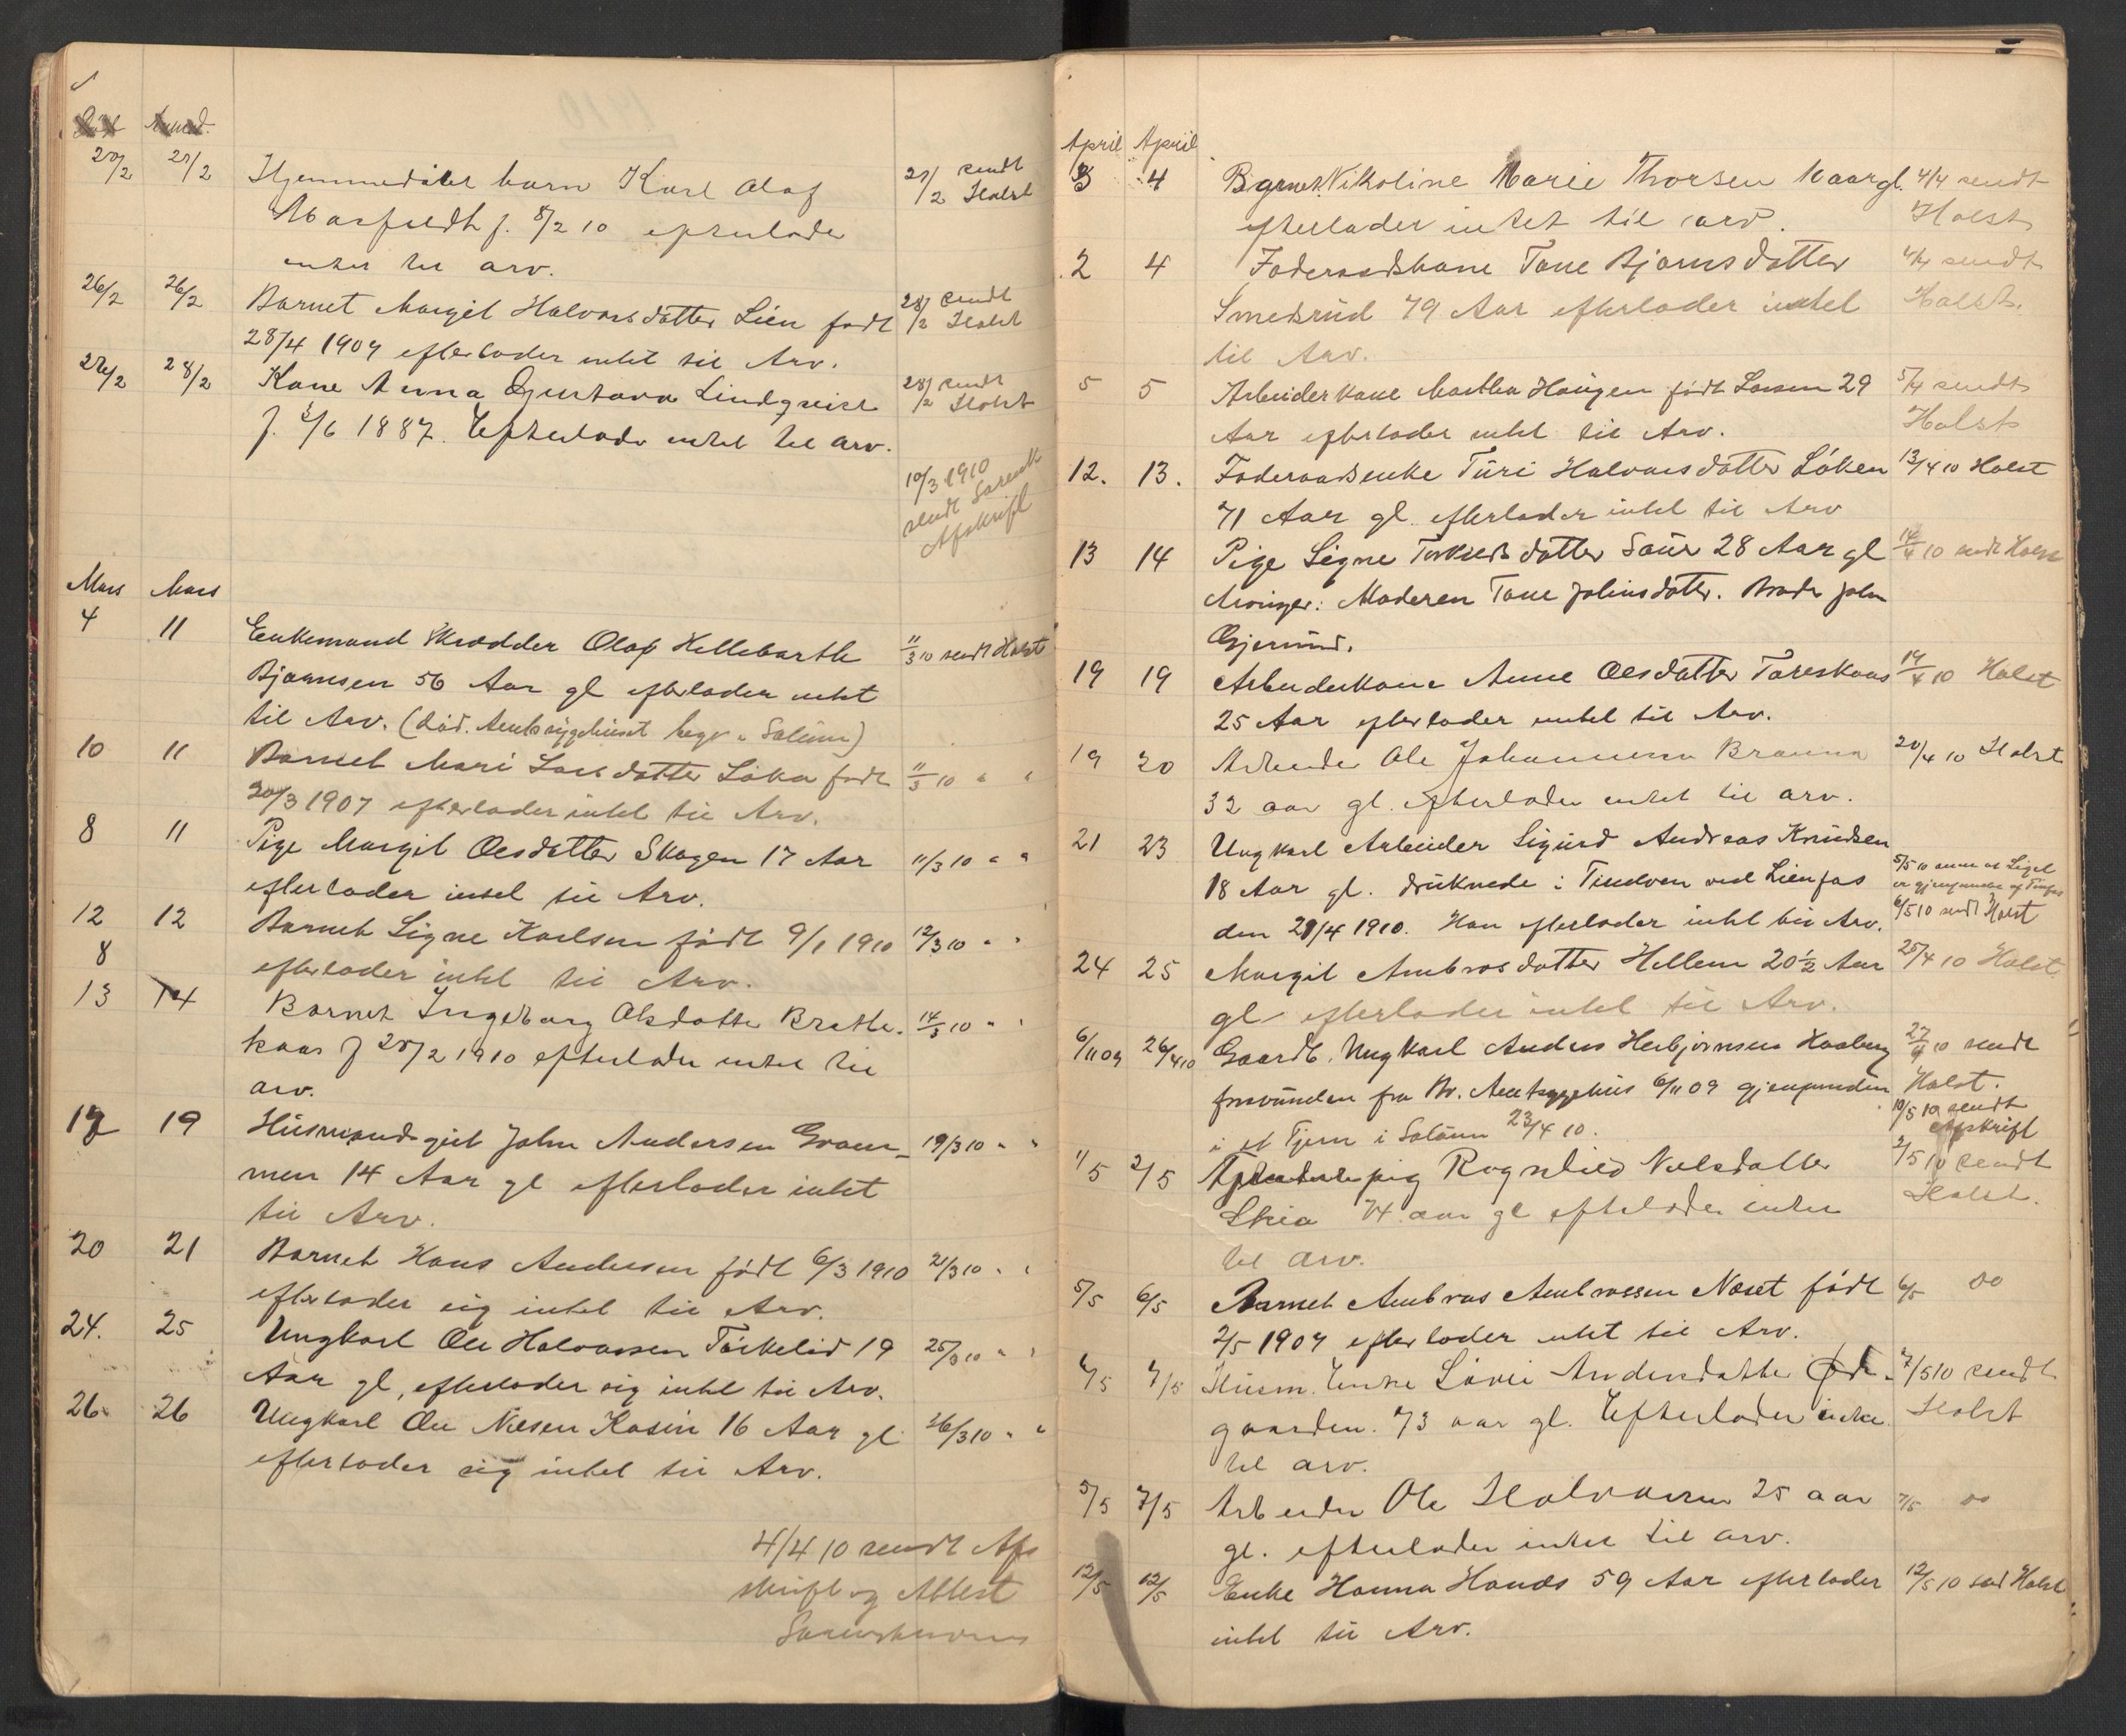 20/2 27/2 Hjemmedøbt barn Karl Olaf 27/2 sendt Holst
f. 8/2 10 efterlader
intet til arv.
26/2 26/2 Barnet Margit Halvorsdatter Lien født 28/2 sendt Holst
28/4 1909 efterlader intet til Arv.
28/2 Kone Anna Gustava Lindqvist 28/2 sendt Holst
f. 1887. Efterlader intet til arv.
10/3 1910
sendt Sorensk
Afskrift
Mars Mars
4 11 Enkemand Skrædder Olaf Hellebarth 11/3 10 sendt Holst
Bjørnsen 56 Aar gl efterlader intet
til Arv. (død. Amtssygehuset begr. i Solum)
10 11 Barnet Mari Larsdatter født 11/3 10 " "
20/3 1907 efterlader intet til Arv.
8 11 Pige Margit Olsdatter Skogen 17 Aar 11/3 10 " "
efterlader intet til Arv.
12 12 Barnet Signe Karlsen født 9/1 1910 12/3 10 " "
8 efterlader intet til Arv.
13 14 Barnet Ingeborg Olsdatter Bratte- 14/3 10 " "
kaas f 20/2 1910 efterlader intet til
arv.
17 19 Husmandsgut John Andersen Gram- 19/3 10 " "
men 14 Aar gl efterlader intet
til Arv.
20 21 Barnet Hans Andersen født 6/3 1910 21/3 10 " "
efterlader sig intet til Arv.
24. 25 Ungkarl Ole Halvorsen Torkelid 19 25/3 10 " "
Aar gl, efterlader sig intet til Arv.
26. 26 Ungkarl Ole Nilsen Kasin 16 Aar gl 26/3 10 " "
efterlader sig intet til Arv.
4/4 10 sendt Af-
skrift og Attest
Sorenskriveren
April April
3 4 Barnet Nikoline Marie Thorsen 10 aar gl. 4/4 sendt
efterlader intet til arv. Holst
2 4 Føderaadskone Tone Bjørnsdatter 4/4 sendt
Smedsrud 79 Aar efterlader intet Holst.
til Arv.
5 5 Arbeiderkone Martha Haugen født Larsen 29 5/4 sendt
Aar efterlader intet til Arv. Holst
12. 13. Føderaadsenke Turi Halvorsdatter Løken 13/4 10 Holst
71 Aar gl. efterlader intet til Arv
13 14 Pige Signe Torkilsdatter Saue 28 Aar gl 14/4 10 sendt Holst
Arvinger: Moderen Tone Johnsdatter. Broder John
Gjerund.
19 19 Arbeiderkone Anne Olsdatter Toreskaas 19/4 10 Holst
25 Aar efterlader intet til Arv.
19 20 Arbeider Ole Johannesen 20/4 10 Holst
32 aar gl. efterlader intet til arv.
21 23 Ungkarl Arbeider Sigurd Andreas Knudsen
18 Aar gl. druknede i Tindven ved Lienfos
den 21/4 1910. Han efterlader intet til Arv. 6/5 10 sendt Holst
24 25 Margit Ambrosdatter Hellem 20½ Aar 25/4 10 Holst
gl efterlader intet til Arv.
6/11 09 26/4 10 Gaardb. Ungkarl Anders Herbjørnsen Haaberg 27/4 10 sendt
forsvunden fra Br. Amtsygehus 6/11 09 gjenfunden Holst.
i et Tjern i Solum 23/4 10. 10/5 10 sendt Afskrift
1/5 2/5 pig Ragnhild Nilsdatter 2/5 10 sendt
74 aar gl efterlader intet Holst.
til arv.
5/5 6/5 Barnet Ambros Ambrossen Næset født 6/5 do
2/5 1909 efterlader intet til Arv.
6/5 7/5 Husm. Enke Andersdatter Øde- 7/5 10 sendt
gaarden. 73 aar gl. Efterlader intet Holst
til arv.
5/5 7/5 Arbeider Ole Halvorsen 25 aar 7/5 do
gl. efterlader intet til arv.
12/5 12/5 Enke Hanna Honds 59 Aar efterlader 12/5 10 sendt Holst
intet til Arv.